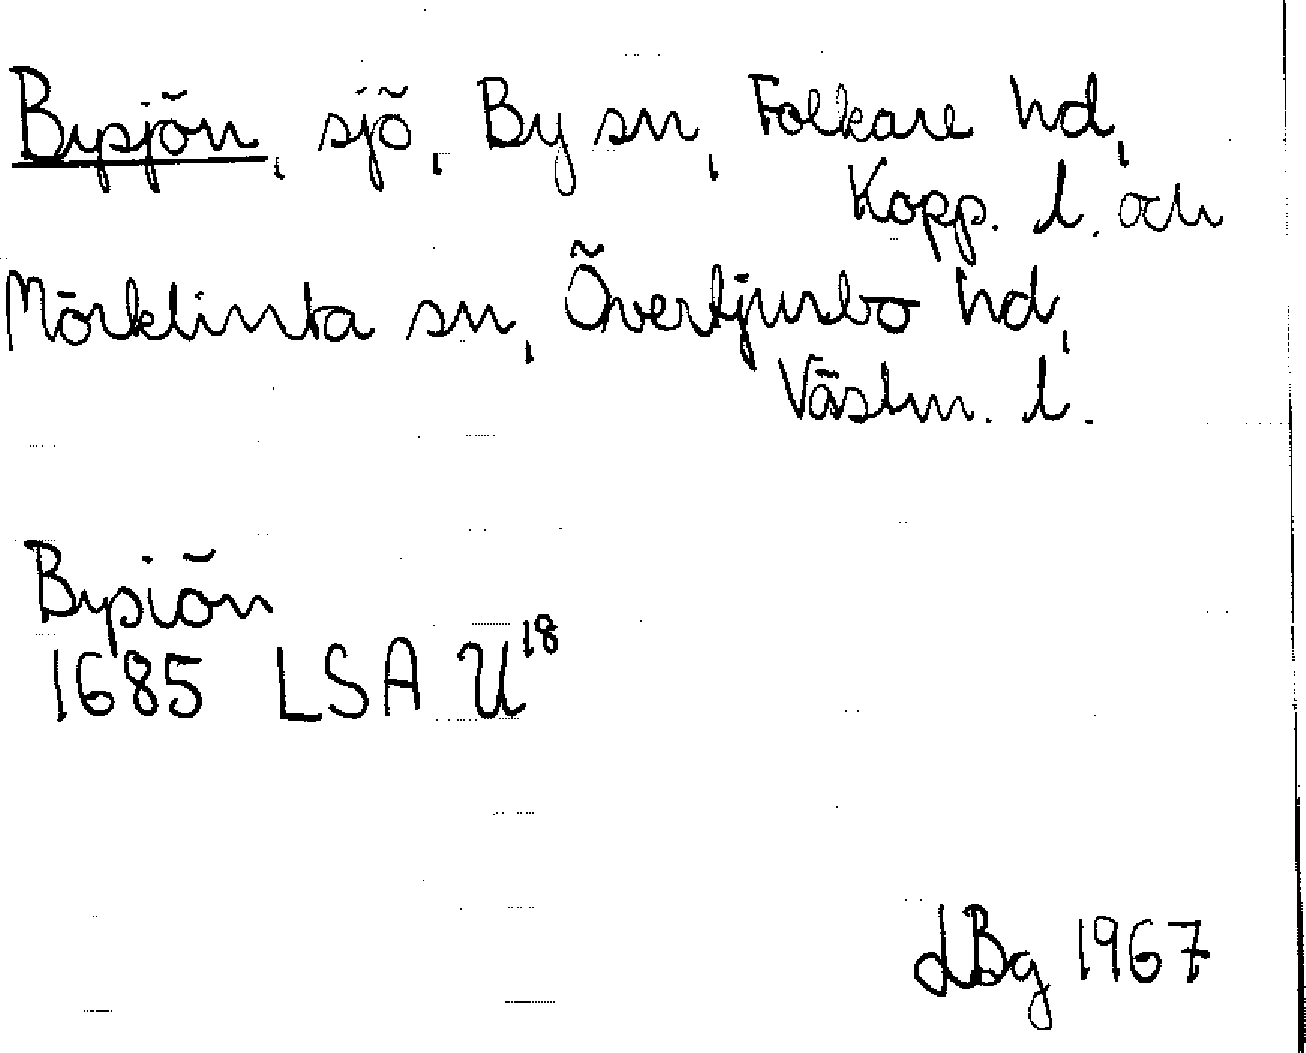 Bysjön, sjö, By sn, Folkare hd,
Kopp. l. och
Mörklinta sn, Övertjurbo hd,
Västm. l.
Bysiön
1685 LSA U18
LBg 1967